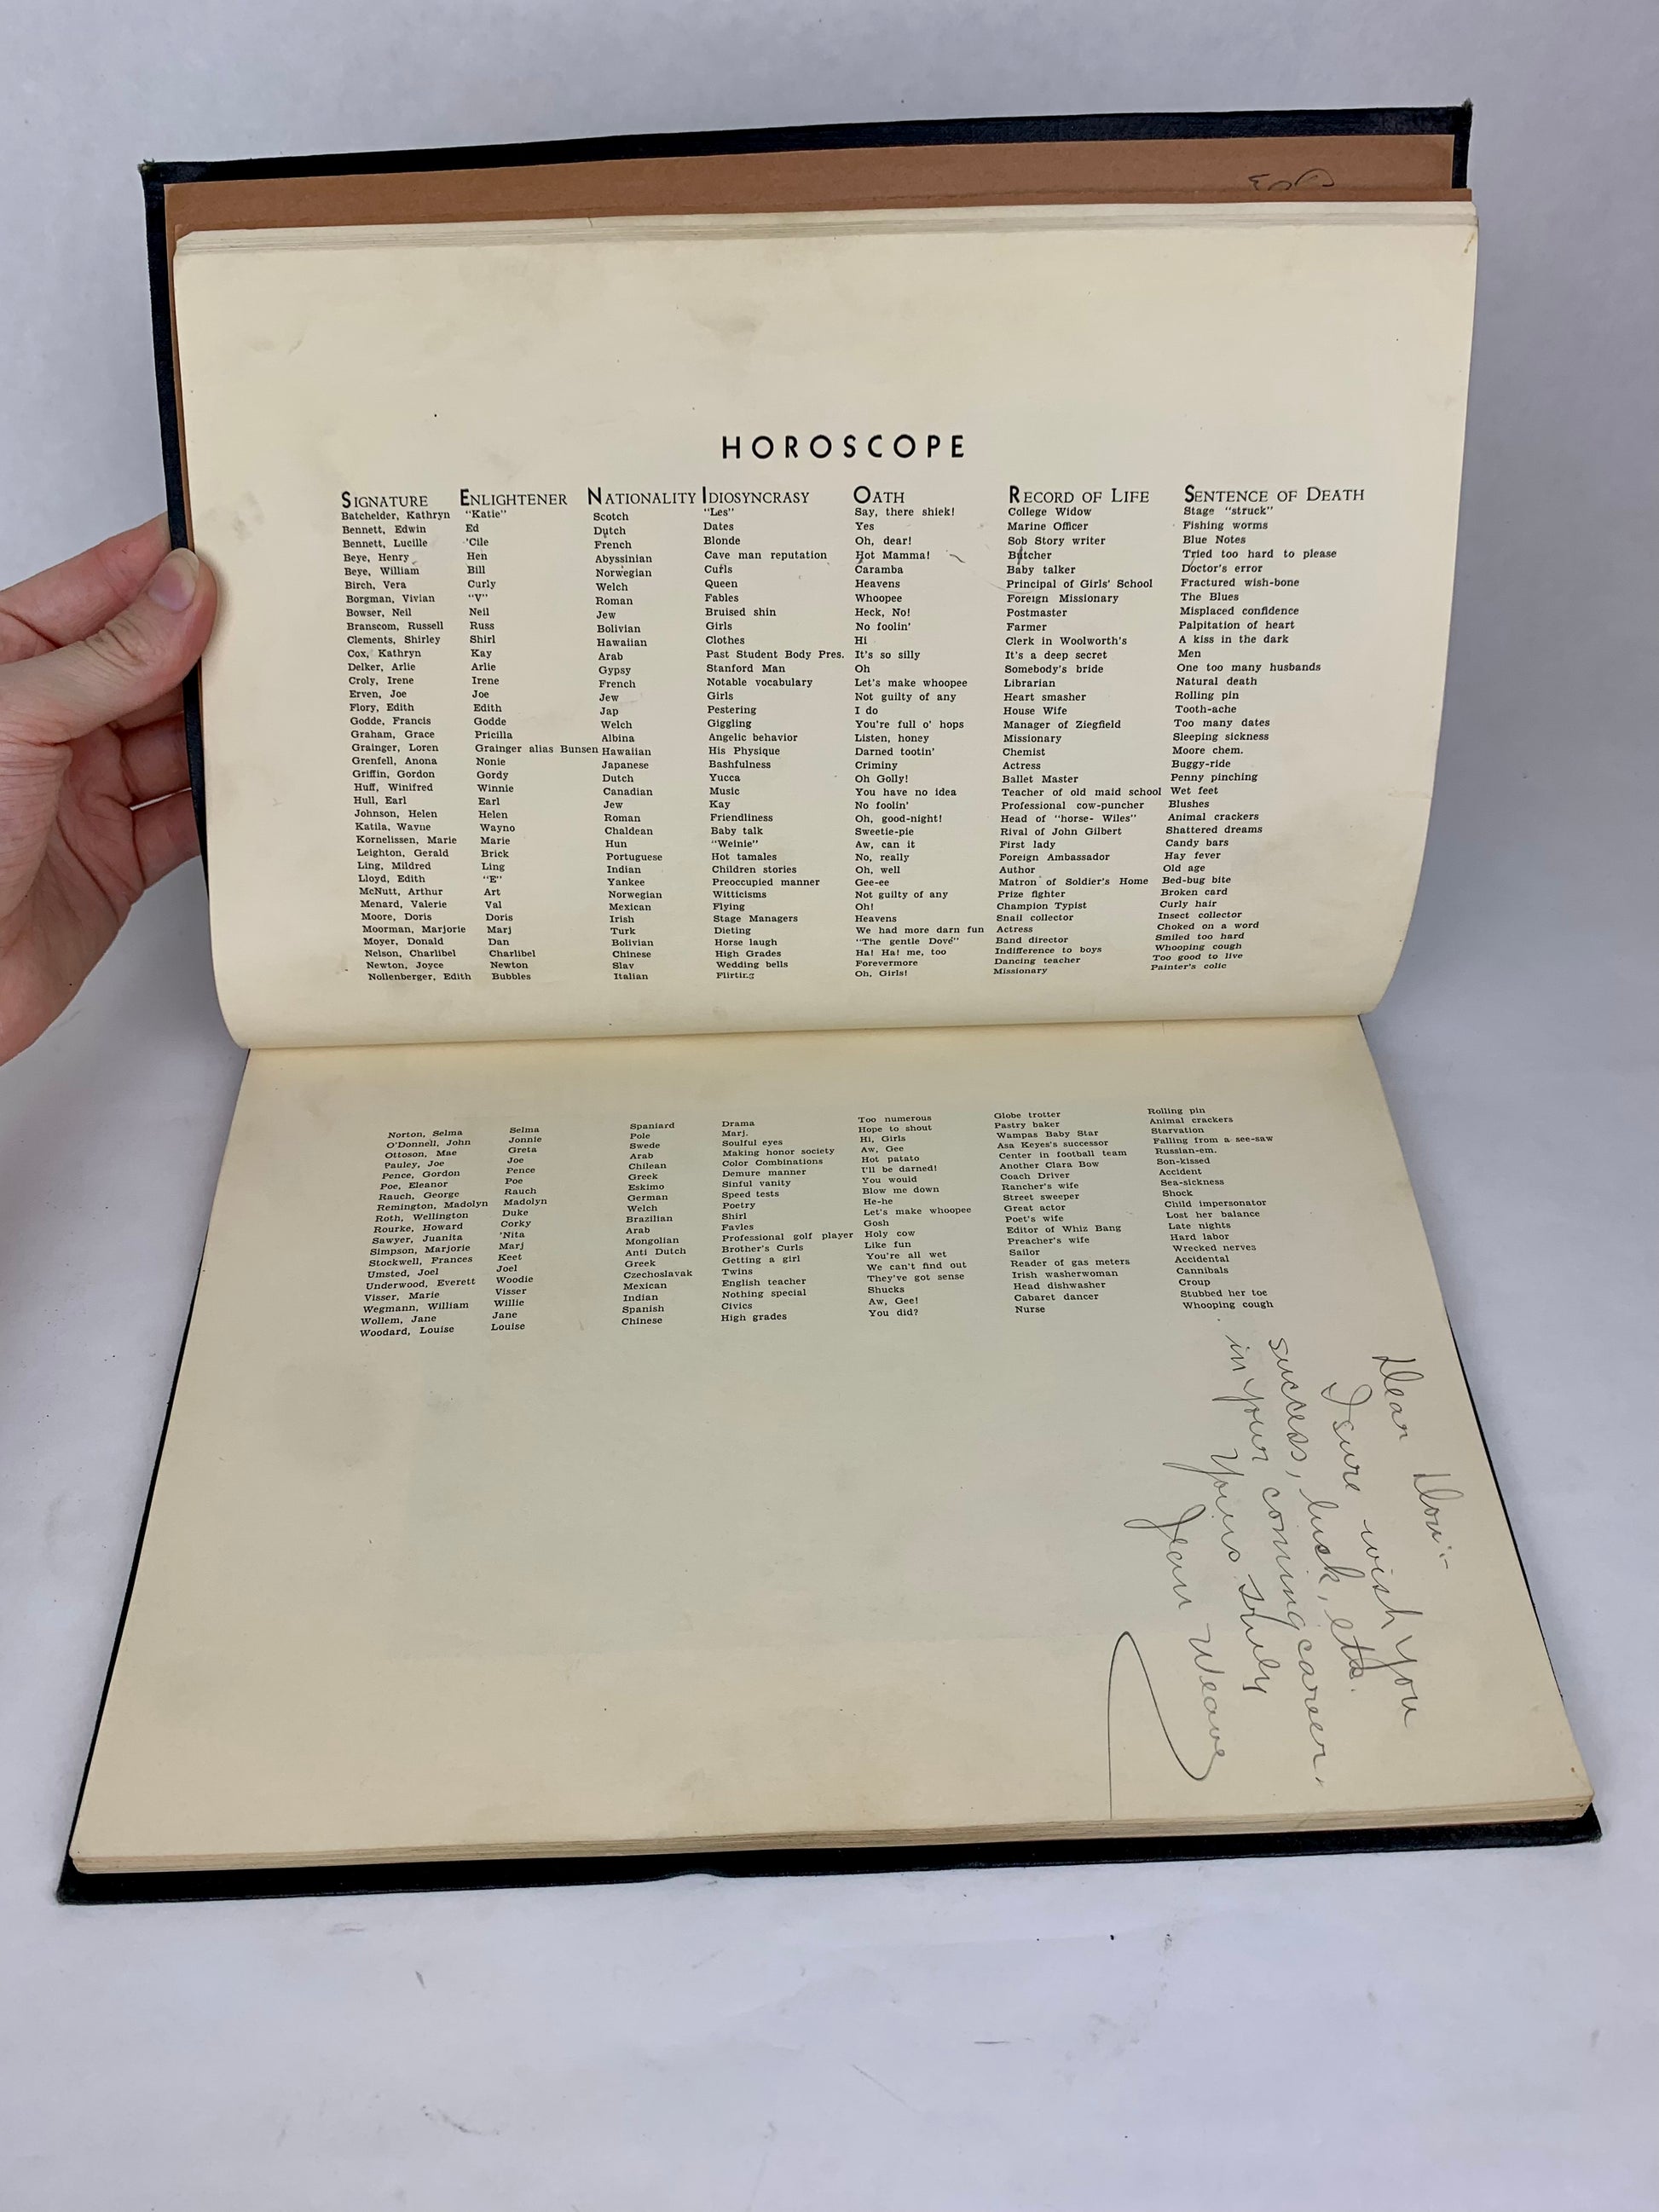 HOROSCOPE
SIGNATURE ENLIGHTENER NATIONALITY IDIOSYNCRASY OATH RECORD OF LIFE SENTENCE OF DEATH
Batchelder, Kathryn "Katie" Scotch "Les" Say, there shiek! College Widow Stage "struck"
Bennett, Edwin Ed Dutch Dates Yes Marine Officer Fishing worms
Bennett, Lucille 'Cile French Blonde Oh, dear! Sob Story writer Blue Notes
Beye, Henry Hen Abyssinian Cave man reputation Hot Mamma! Butcher Tried too hard to please
Beye, William Bill Norwegian Curls Caramba Baby talker Doctor's error
Birch, Vera Curly Welch Queen Heavens Principal of Girls' School Fractured wish-bone
Borgman, Vivian "V" Roman Fables Whoopee Foreign Missionary The Blues
Bowser, Neil Neil Jew Bruised shin Heck, No! Postmaster Misplaced confidence
Branscom, Russell Russ Bolivian Girls No foolin' Farmer Palpitation of heart
Clements, Shirley Shirl Hawaiian Clothes Hi Clerk in Woolworth's A kiss in the dark
Cox, Kathryn Kay Arab Past Student Body Pres. It's so silly It's a deep secret Men
Delker, Arlie Arlie Gypsy Stanford Man Oh Somebody's bride One too many husbands
Croly, Irene Irene French Notable vocabulary Let's make whoopee Librarian Natural death
Erven, Joe Joe Jew Girls Not guilty of any Heart smasher Rolling pin
Flory, Edith Edith Jap Pestering I do House Wife Tooth-ache
Godde, Francis Godde Welch Giggling You're full o' hops Manager of Ziegfield Too many dates
Graham, Grace Pricilla Albina Angelic behavior Listen, honey Missionary Sleeping sickness
Grainger, Loren Grainger alias Bunsen Hawaiian His Physique Darned tootin' Chemist Moore chem.
Grenfell, Anona Nonie Japanese Bashfulness Criminy Actress Buggy-ride
Griffin, Gordon Gordy Dutch Yucca Oh Golly! Ballet Master Penny pinching
Huff, Winifred Winnie Canadian Music You have no idea Teacher of old maid school Wet feet
Hull, Earl Earl Jew Kay No foolin' Professional cow-puncher Blushes
Johnson, Helen Helen Roman Friendliness Oh, good-night! Head of "horse- Wiles" Animal crackers
Katila, Wayne Wayno Chaldean Baby talk Sweetie-pie Rival of John Gilbert Shattered dreams
Kornelissen, Marie Marie Hun "Weinie" Aw, can it First lady Candy bars
Leighton, Gerald Brick Portuguese Hot tamales No, really Foreign Ambassador Hay fever
Ling, Mildred Ling Indian Children stories Oh, well Author Old age
Lloyd, Edith "E" Yankee Preoccupied manner Gee-ee Matron of Soldier's Home Bed-bug bite
McNutt, Arthur Art Norwegian Witticisms Not guilty of any Prize fighter Broken card
Menard, Valerie Val Mexican Flying Oh! Champion Typist Curly hair
Moore, Doris Doris Irish Stage Managers Heavens Snail collector Insect collector
Moorman, Marjorie Marj Turk Dieting We had more darn fun Actress Choked on a word
Moyer, Donald Dan Bolivian Horse laugh "The gentle Dove" Band director Smiled too hard
Nelson, Charlibel Charlibel Chinese High Grades Ha! Ha! me, too Indifference to boys Whooping cough
Newton, Joyce Newton Slav Wedding bells Forevermore Dancing teacher Too good to live
Nollenberger, Edith Bubbles Italian Flirting Oh, Girls! Missionary Painter's colic
Norton, Selma Selma Spaniard Drama Too numerous Globe trotter Rolling pin
O'Donnell, John Jonnie Pole Marj. Hope to shout Pastry baker Animal crackers
Ottoson, Mae Greta Swede Soulful eyes Hi, Girls Wampas Baby Star Starvation
Pauley, Joe Joe Arab Making honor society Aw, Gee Asa Keyes's successor Falling from a see-saw
Pence, Gordon Pence Chilean Color Combinations Hot patato Center in football team Russian-em.
Poe, Eleanor Poe Greek Demure manner I'll be darned! Another Clara Bow Son-kissed
Rauch, George Rauch Eskimo Sinful vanity You would Coach Driver Accident
Remington, Madolyn Madolyn German Speed tests Blow me down Rancher's wife Sea-sickness
Roth, Wellington Duke Welch Poetry He-he Street sweeper Shock
Rourke, Howard Corky Brazilian Shirl Let's make whoopee Great actor Child impersonator
Sawyer, Juanita 'Nita Arab Favles Gosh Poet's wife Lost her balance
Simpson, Marjorie Marj Mongolian Professional golf player Holy cow Editor of Whiz Bang Late nights
Stockwell, Frances Keet Anti Dutch Brother's Curls Like fun Preacher's wife Hard labor
Umsted, Joel Joel Greek Getting a girl You're all wet Sailor Wrecked nerves
Underwood, Everett Woodie Czechoslavak Twins We can't find out Reader of gas meters Accidental
Visser, Marie Visser Mexican English teacher They've got sense Irish washerwoman Cannibals
Wegmann, William Willie Indian Nothing special Shucks Head dishwasher Croup
Wollem, Jane Jane Spanish Civics Aw, Gee! Cabaret dancer Stubbed her toe
Woodard, Louise Louise Chinese High grades You did? Nurse Whooping cough
Dear
I sure wish you
success, luck, etc.
in your coming career.
Yours truly
Jean Weaver